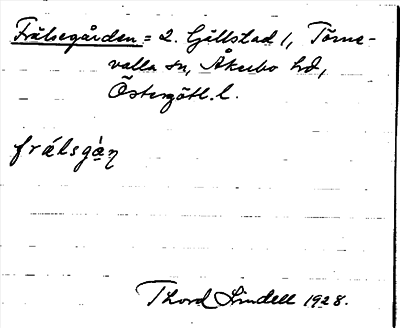 Frälsegården = 2. Gillstad 1, Törne-
valla sn, Åkerbo hd,
Östergötl. l.
frálsgàn̥
Thord Lindell 1928.